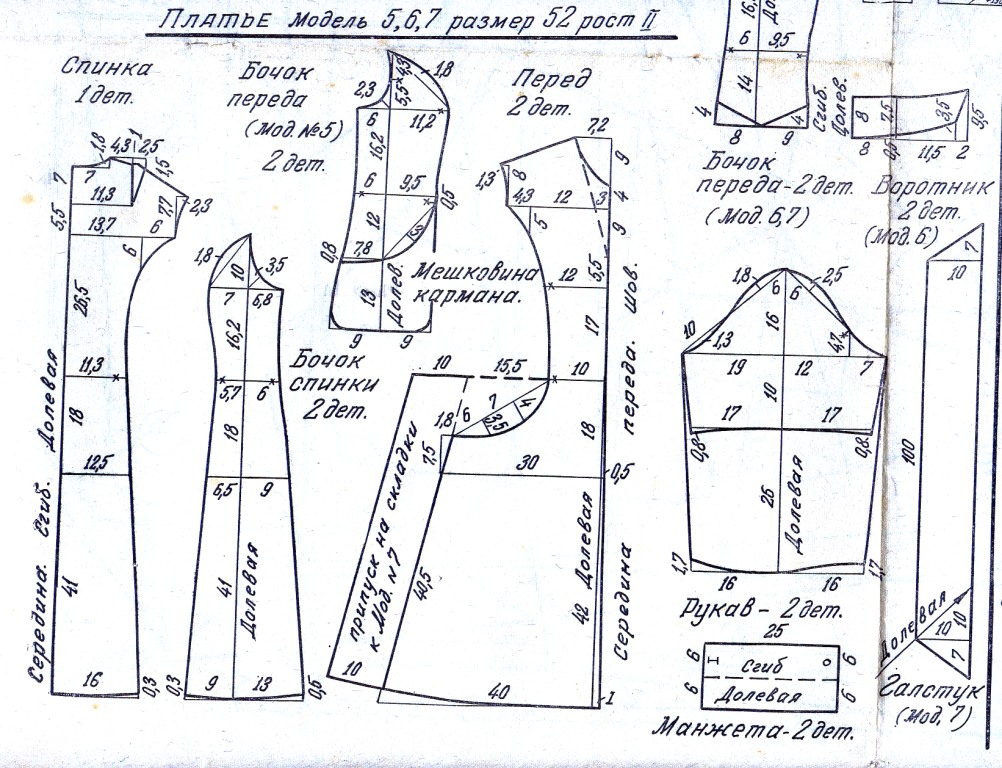 Платье модель 5,6,7 размер 52 рост II
Спинка
1 дет.
1,8
4,3
1
2,5
1,5
7
7
11,3
7,7
2,3
5,5
13,7
6
6
26,5
11,3
18
12,5
41
16
0,3
Середина. Сгиб. Долевая
Бочок
переда
(Мод. №5)
2 дет.
2,3
5,5
4,3
1,8
6
11,2
16,2
6
9,5
0,5
12
0,8
7,8
3
13
Долев.
9
9
Мешковина
кармана.
1,8
10
3,5
7
6,8
16,2
5,7
6
18
6,5
9
41
Долевая
0,3
9
13
0,6
Бочок
спинки
2 дет.
Перед
2 дет.
7,2
9
1,3
8
4,3
12
3
4
5
9
12
5,5
17
10
15,5
10
1,8
6
7
3,5
4
7,5
18
30
0,5
40,5
42
Долевая
10
40
1
припуск на складки
к Мод. №7
Середина переда. Шов.
16,2
До
6
9,5
14
4
4
8
9
Сгиб.
Долев.
Бочок
переда-2 дет.
(Мод. 6,7)
8
7,5
3,5
9,5
8
0,5
11,5
2
Воротник
2 дет.
(Мод. 6)
1,8
2,5
6
6
10
1,3
16
4,7
19
12
7
10
17
17
0,8
0,8
26
Долевая
1,7
16
16
1,7
Рукав - 2 дет.
25
6
Сгиб
6
6
Долевая
6
Манжета-2 дет.
7
10
100
Долевая
10
10
7
Галстук
(Мод. 7)